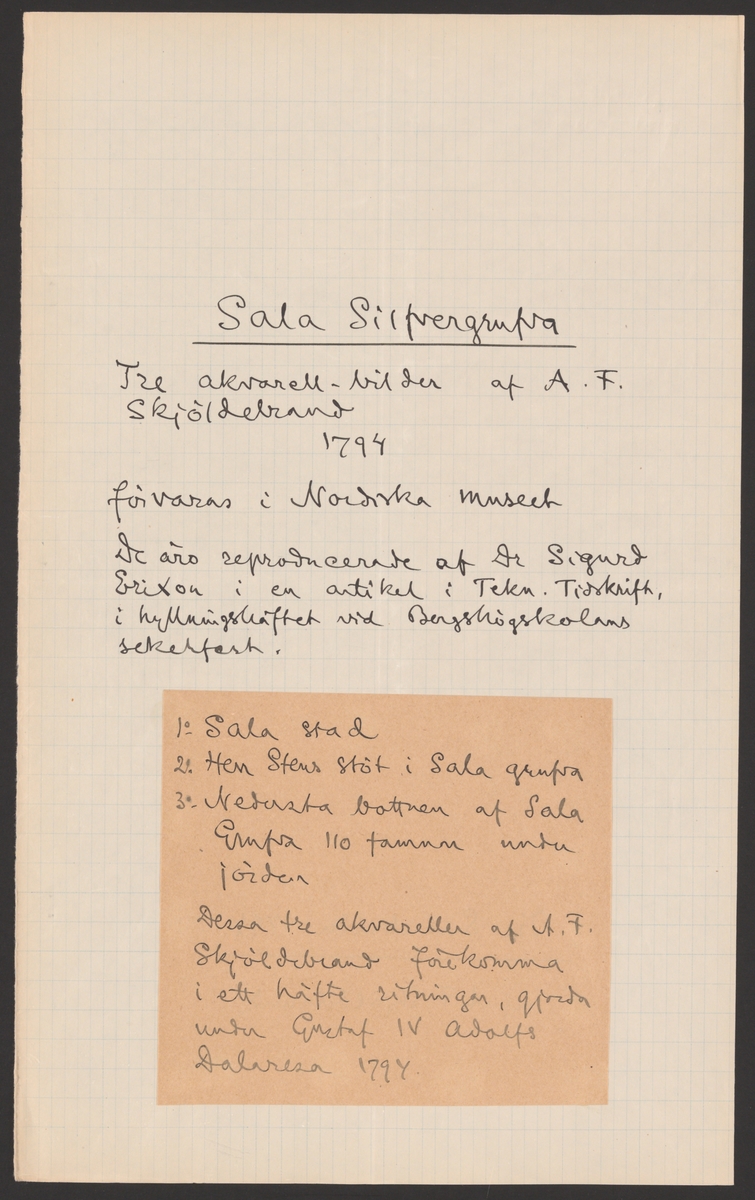 Sala Silfvergrufva
Tre akvarell-bilder af A. F.
Skjöldebrand
1794
förvaras i Nordiska museet
De äro reproducerade af Dr Sigurd
Erixon i en artikel i Tekn. Tidskrift,
i hyllningshäftet vid Bergshögskolans
sekelfest.
1o Sala stad
2o. Herr Stens stöt i Sala grufva
3o- Nedersta bottnen af Sala
Grufva 110 famnar under
jorden
Dessa tre akvareller af A. F.
Skjöldebrand förekomma
i ett häfte ritningar, gjorda
under Gustaf IV Adolfs
Dalaresa 1794.